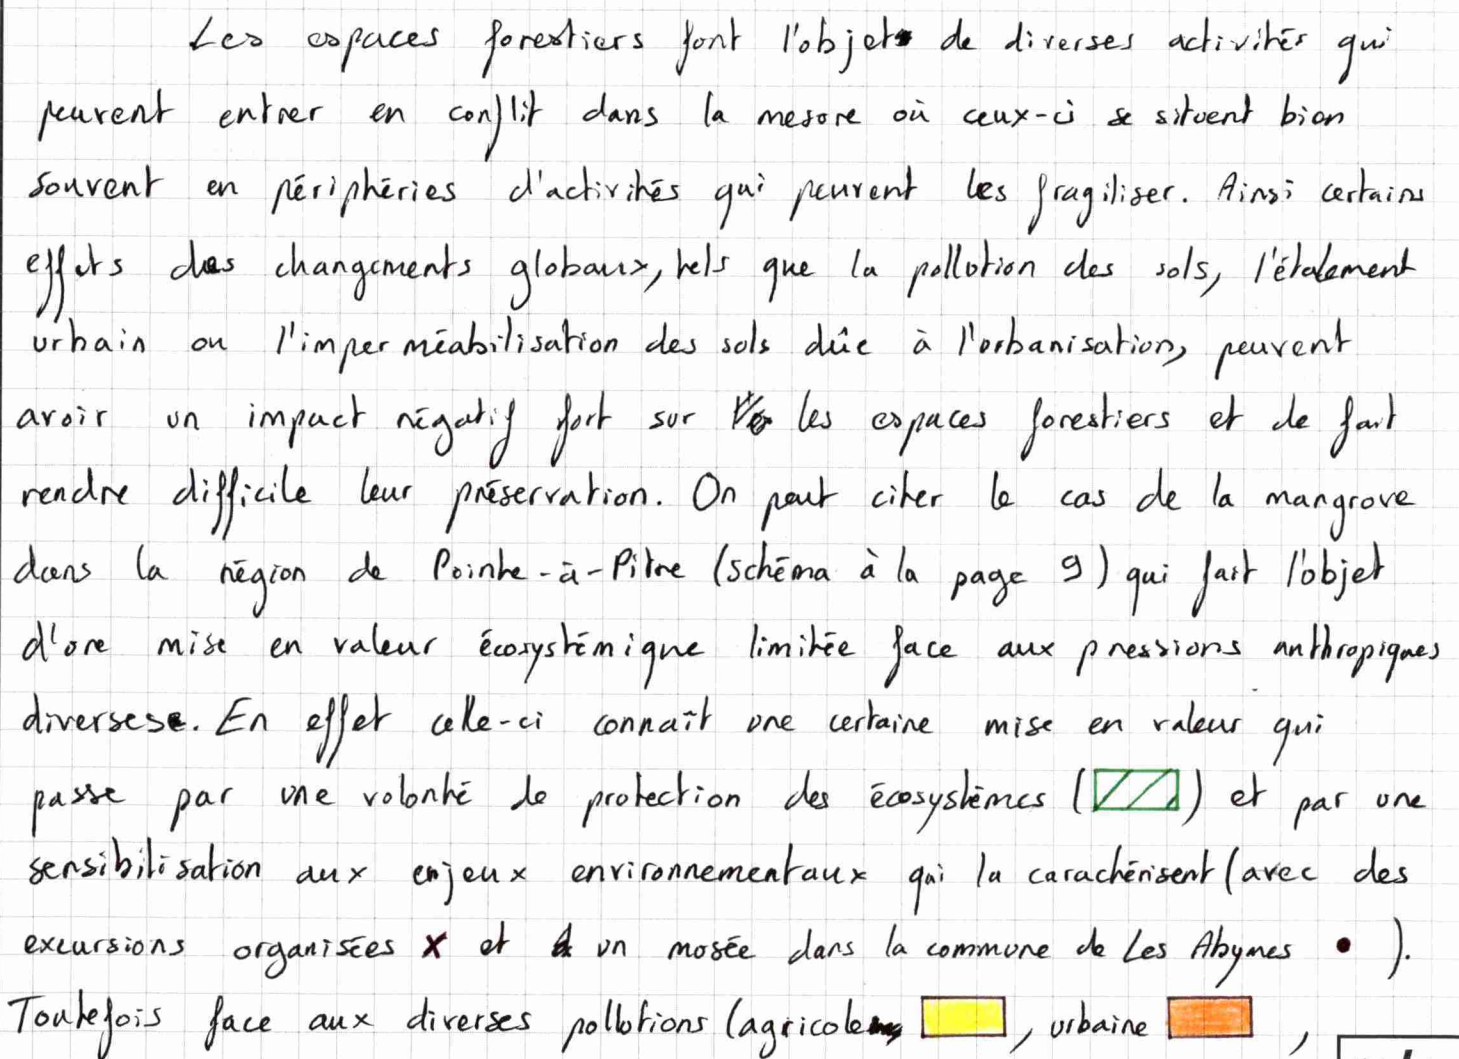 Les espaces forestiers font l'objet de diverses activités qui
peuvent entrer en conflit dans la mesure où ceux-ci se situent bien
souvent en périphéries d'activités qui peuvent les fragiliser. Ainsi certains
effets des changements globaux, tels que la pollution des sols, l'étalement
urbain ou l'imperméabilisation des sols dûe à l'urbanisation, peuvent
avoir un impact négatif fort sur les espaces forestiers et de fait
rendre difficile leur préservation. On peut citer le cas de la mangrove
dans la région de Pointe-à-Pitre (schéma à la page 9) qui fait l'objet
d'une mise en valeur écosystémique limitée face aux pressions anthropiques
diverses. En effet celle-ci connaît une certaine mise en valeur qui
passe par une volonté de protection des écosystèmes ( ) et par une
sensibilisation aux enjeux environnementaux qui la caractérisent (avec des
excursions organisées x et un musée dans la commune de Les Abymes • ).
Toutefois face aux diverses pollutions (agricole , urbaine ,